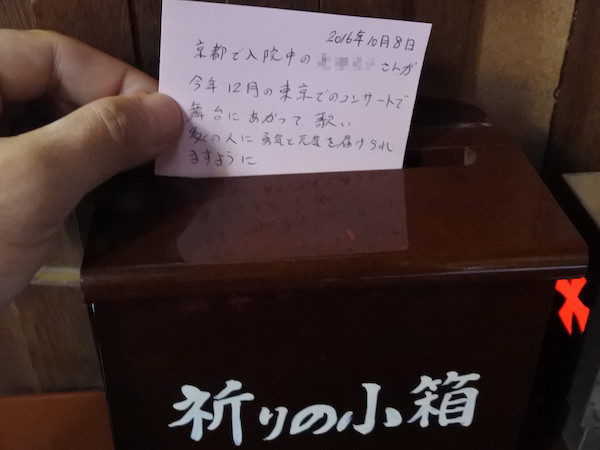 2016年10月8日
京都で入院中の さんが
今年12月の東京でのコンサートで
舞台にあがって歌い
多くの人に勇気と元気を届けられ
ますように
祈りの小箱